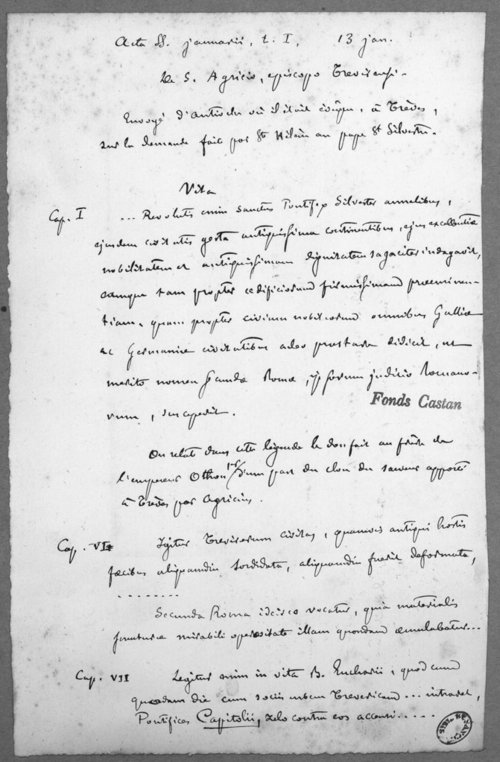 Acta SS. januarii, t. I, 13 jan.
De S. Agricio, episcopo Trevirensi.
Envoyé d'Antioche où il était évêque, à Trèves,
sur la demande faite par Ste Hélène au pape St Silvestre.
Vita
Cap. I ... Revolutis enim sanctus Pontifex Silvester annalibus,
ejusdem civitatis gesta antiquissima continentibus, ejus excellentiæ
nobilitatem et antiquissimam dignitatem sagaciter indagavit,
eamque tam propter ædificiorum firmissimam preeminen-
tiam, quam propter civium nobiliorum omnibus Galliæ
ac Germaniæ civitatibus adeo prestare didicit, ut
merito nomen secundæ Romæ, ipsorum judicio Romano-
rum, sit
Fonds Castan
On relate dans cette légende le don fait au frère de
l'empereur Othon Ier d'une part du clou du sauveur apporté
à Trèves par Agricius.
Cap. VI Igitur Trevirorum civitas, quamvis antiqui hostis
fæcibus aliquamdiu sordidata, aliquamdiu fuerit deformata,
........
Secunda Roma idcirco vocatur, quia materialis
structuræ mirabili operositate illam quondam æmulabatur...
Cap. VII Legitur enim in vita B. Eucharii, quod cum
quodam die cum sociis urbem Trevericam... intraret,
Pontifices Capitolii, zelo contra eos accensi.....